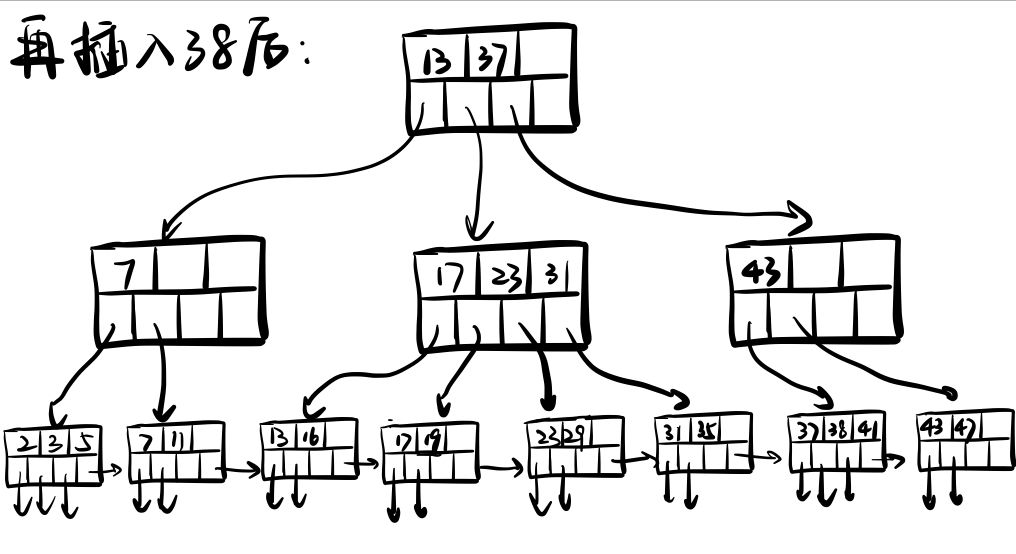 再插入38后:
13 37
7
17 23 31
43
2 3 5
7 11
13 16
17 19
23 29
31 35
37 38 41
43 47